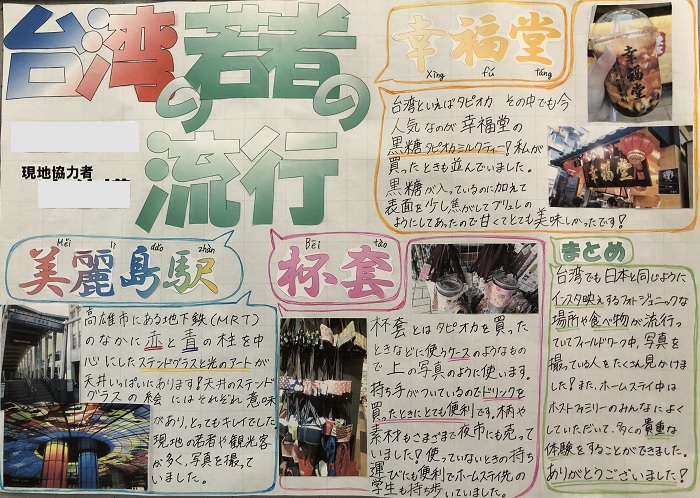 台湾の若者の
流行
現地協力者
幸福堂
Xìng fú táng
台湾といえばタピオカ その中でも今
人気なのが幸福堂の
黒糖タピオカミルクティー!私が
買ったときも並んでいました。
黒糖が入っているのに加えて
表面を少し焦がしてブリュレの
ようにしてあったので甘くてとても美味しかったです!
幸福堂
幸福堂
Měi lì dǎo zhàn
美麗島駅
高雄市にある地下鉄(MRT)
のなかに赤と青の柱を中
心にしたステンドグラスと光のアートが
天井いっぱいにあります!天井のステンド
グラスの絵にはそれぞれ意味
があり、とってもキレイでした。
現地の若者や観光客
が多く、写真を撮って
いました。
Bēi tào
杯套
杯套とはタピオカを買った
ときなどに使うケースのようなもの
で上の写真のように使います。
持ち手がついているのでドリンクを
買ったときにとても便利です。柄や
素材もさまざまで夜市にも売って
いました!使っていないときの持ち
運びにも便利でホームステイ先の
学生も持ち歩いていました。
まとめ
台湾でも日本と同じように
インスタ映えするフォトジェニックな
場所や食べ物が流行っ
ていてフィールドワーク中、写真を
撮っている人をたくさん見かけま
した!また、ホームステイ中は
ホストファミリーのみんなによくし
ていただいて、多くの貴重な
体験をすることができました。
ありがとうございました!